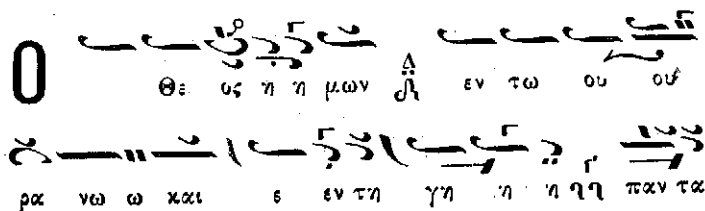 Ο Θε ος η η μων Δ εν τω ου ου
ρα νω ω και ε εν τη γη η η Γ παν τα